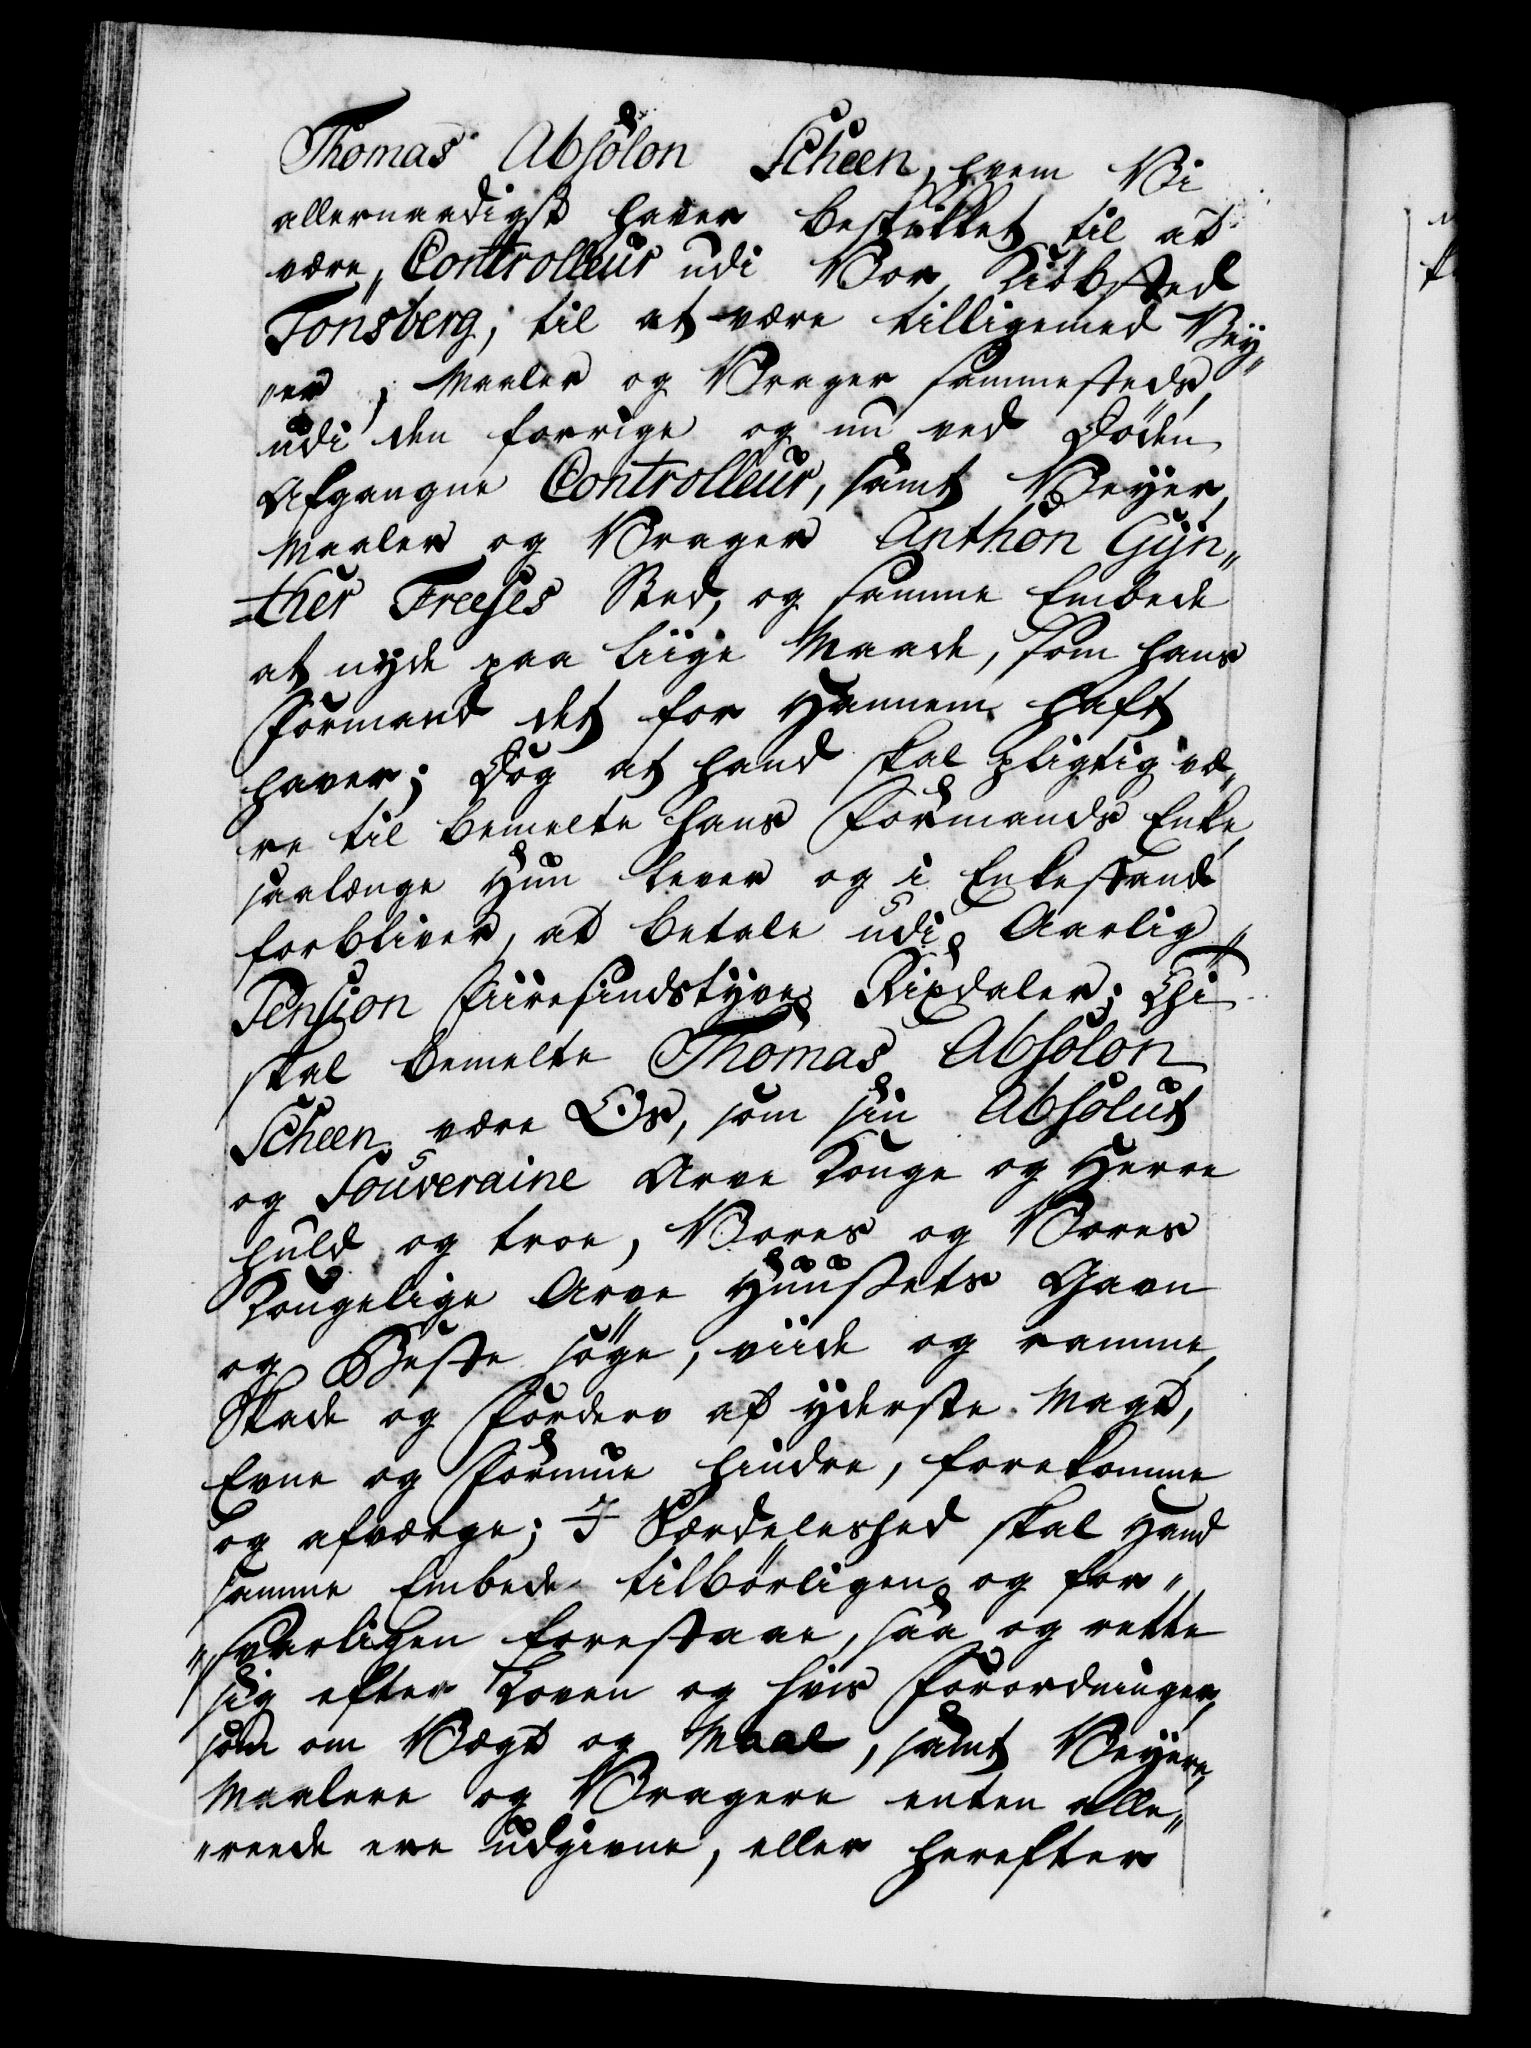 Thomas Absolon Scheen, hvem Vi
allernaadigst haver beskikket til at
være Controlleur udi Vor Kiöbsted
Tönsberg, til at være tilligemed Vey„
„er, Maaler og Vrager sammesteds,
udi den forrige og nu ved Döden
Afgangne Controlleur, samt Veyer,
Maaler og Vrager Anthon Gÿn„
„ther Freeses Sted, og samme Embede
at nyde paa liige Maade, som hans
Formand det for Hannem haft
haver; Dog at hand skal pligtig væ„
re til bemelte hans Formands Enke,
saalænge Hun lever og i Enkestand
forbliver, at betale udi Aarlig„
Pension fiiresindstyve Rixdaler; Thi
skal bemelte Thomas Absolon
Scheen være Os, som sin Absolut
og Souveraine Arve Konge og Herre
huld og troe, Vores og Vores
Kongelige Arve Huusets Gavn
og Beste söge, viide og ramme,
Skade og Forderv af yderste Magt,
Evne og Formue hindre, forekomme
og afværge; I Særdeleshed skal Hand
samme Embede tilbörligen og for„
„svarligen forestaae, saa og rette
sig efter Loven og hvis Forordninger,
som om Vægt og Maal, samt Veyere,
Maalere og Vragere enten alle„
„reede ere udgivne, eller herefter